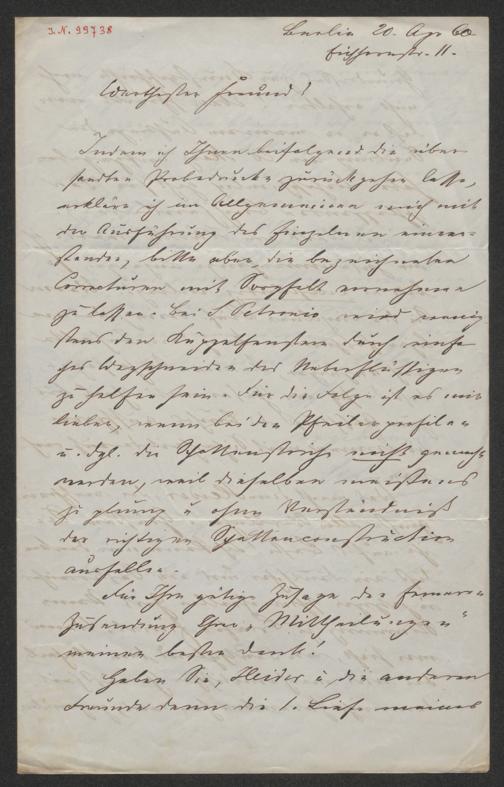 I. N. 99738
Berlin 20. Apr 60
Eichhornstr. 11.
Werthester Freund!
Indem ich Ihnen beifolgend die über
sandten Probedrucke zurückgehen lasse,
erkläre ich im Allgemeinen mich mit
der Ausführung des Einzelnen einver-
standen, bitte aber, die bezeichneten
Correcturen mit Sorgfalt vornehmen
zu lassen. Bei S. Petronio wird wenig
stens den Kuppelfenstern durch einfa
ches Wegschneiden des Ueberflüssigen
zu helfen sein. Für die Folge ist es mir
lieber, wenn bei den Pfeilerprofilen
u. dgl. die Schattenstriche nicht gemacht
werden, weil dieselben meistens
zu plump u ohne Verständniß
der richtigen Schattenconstruction
ausfallen.
Für Ihre gütige Zusage der ferneren
Zusendung Ihrer „Mittheilungen"
meinen besten Dank!
Haben Sie, Heider u die anderen
Freunde denn die 1. Lief. meines